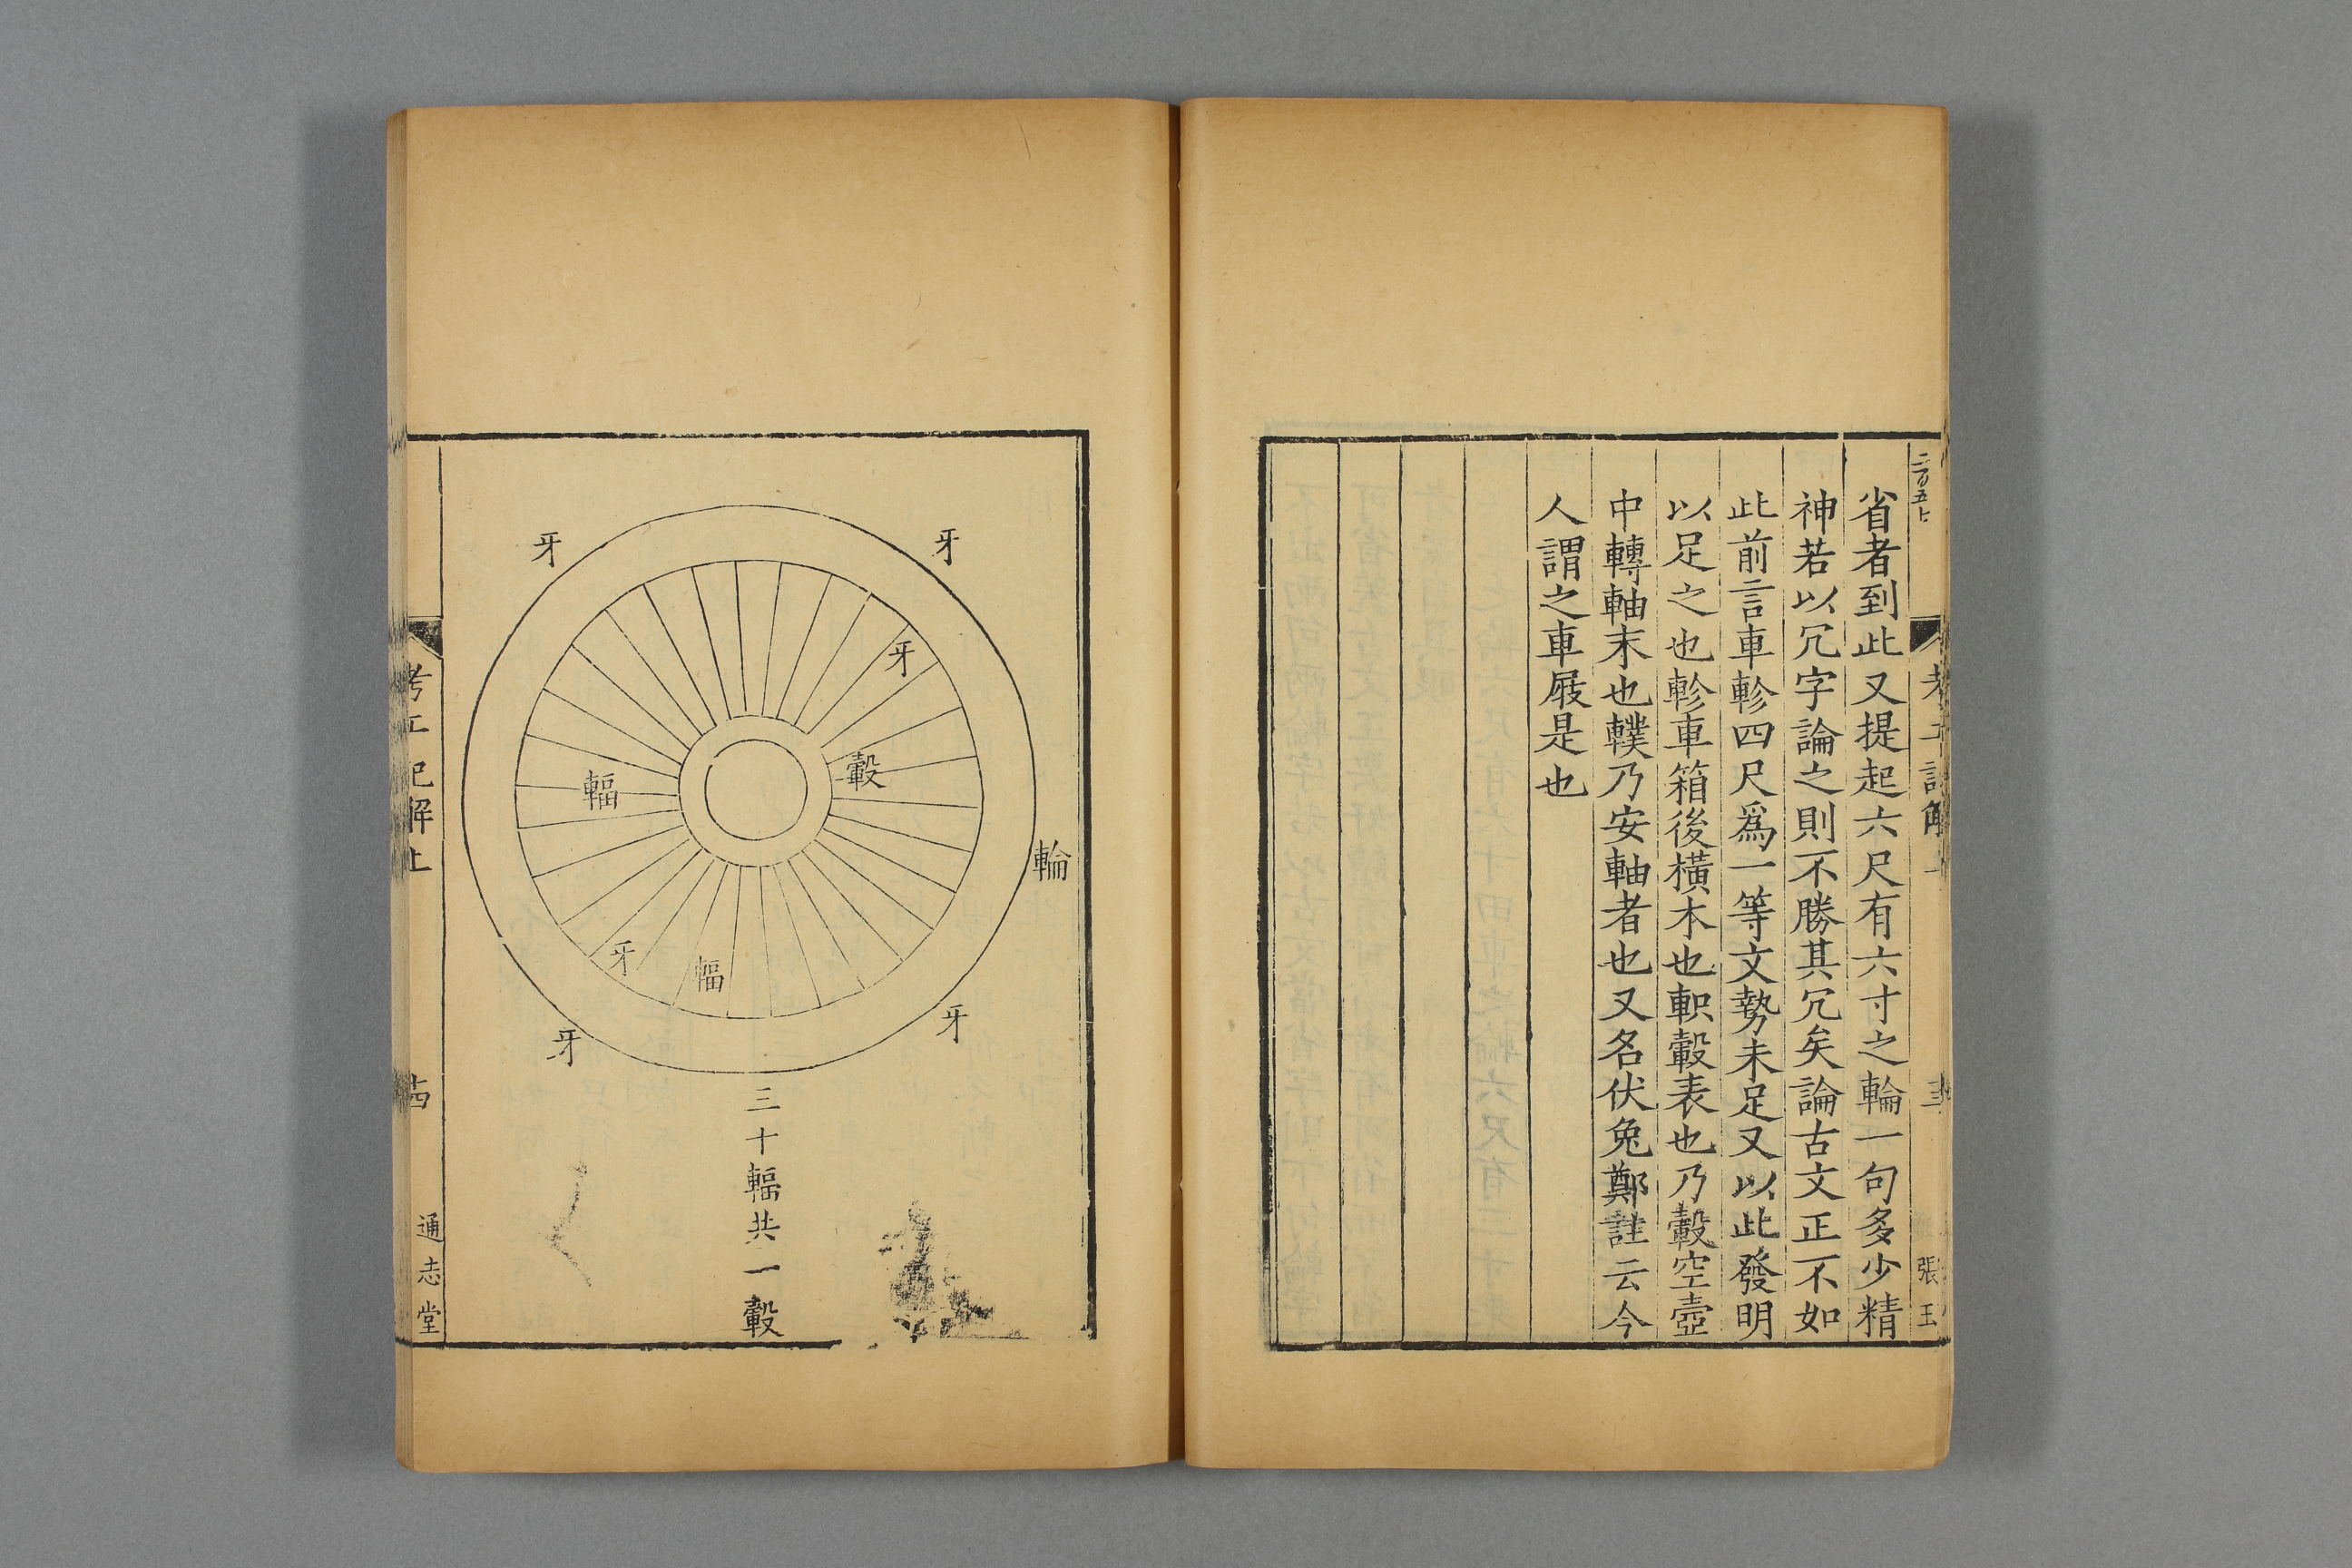 省者到此又提起六尺有六寸之輪一句多少精
神若以冗字論之則不勝其冗矣論古文正不如
此前言車軫四尺爲一等文勢未足又以此發明
以足之也軫車箱後橫木也軹轂表也乃轂空壺
中轉軸末也轐乃安軸者也又名伏兔鄭註云今
人謂之車屐是也
張玉
輪
牙
牙
牙
轂
輻
牙
輻
牙
牙
三十輻共一轂
考工記解上
通志堂